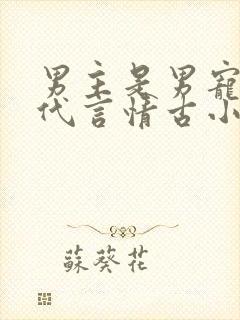 男主是男寵
代言情古小
蘇葵花